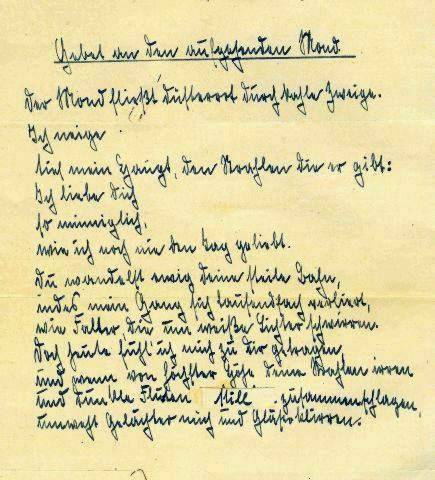 Gebet an den aufgehenden Mond
Der Mond fließt düsterrot durch kahle Zweige.
Ich neige
tief mein Haupt, den Strahlen die er gibt:
Ich liebe Dich
so inniglich,
wie ich noch nie den Tag geliebt.
Du wandelst ewig deine steile Bahn,
indes mein Gang sich tausendfach verliert,
wie Falter die um weiße Lichter schwirren.
Doch heute fühl' ich mich zu dir getragen,
und wenn von höchster Höhe deine Strahlen irren
und dunkle Fluten still zusammenschlagen,
umweht Gelächter mich und Gläserklirren.